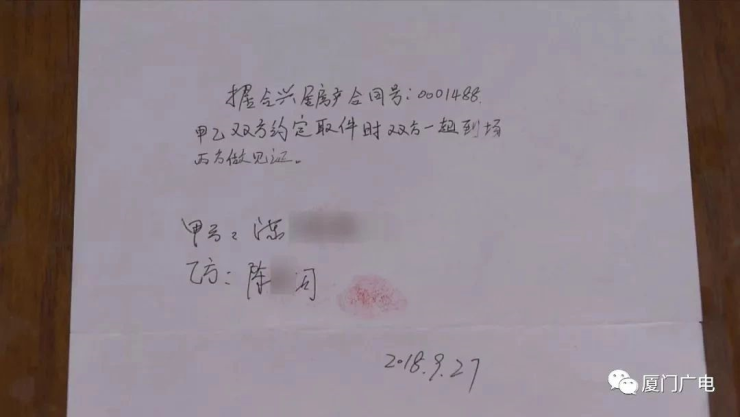 据合兴星房产合同号:0001488.
甲乙双方约定取件时双方一起到场
丙方做见证。
甲方:
乙方:陈 河
2018.9.27
厦门广电